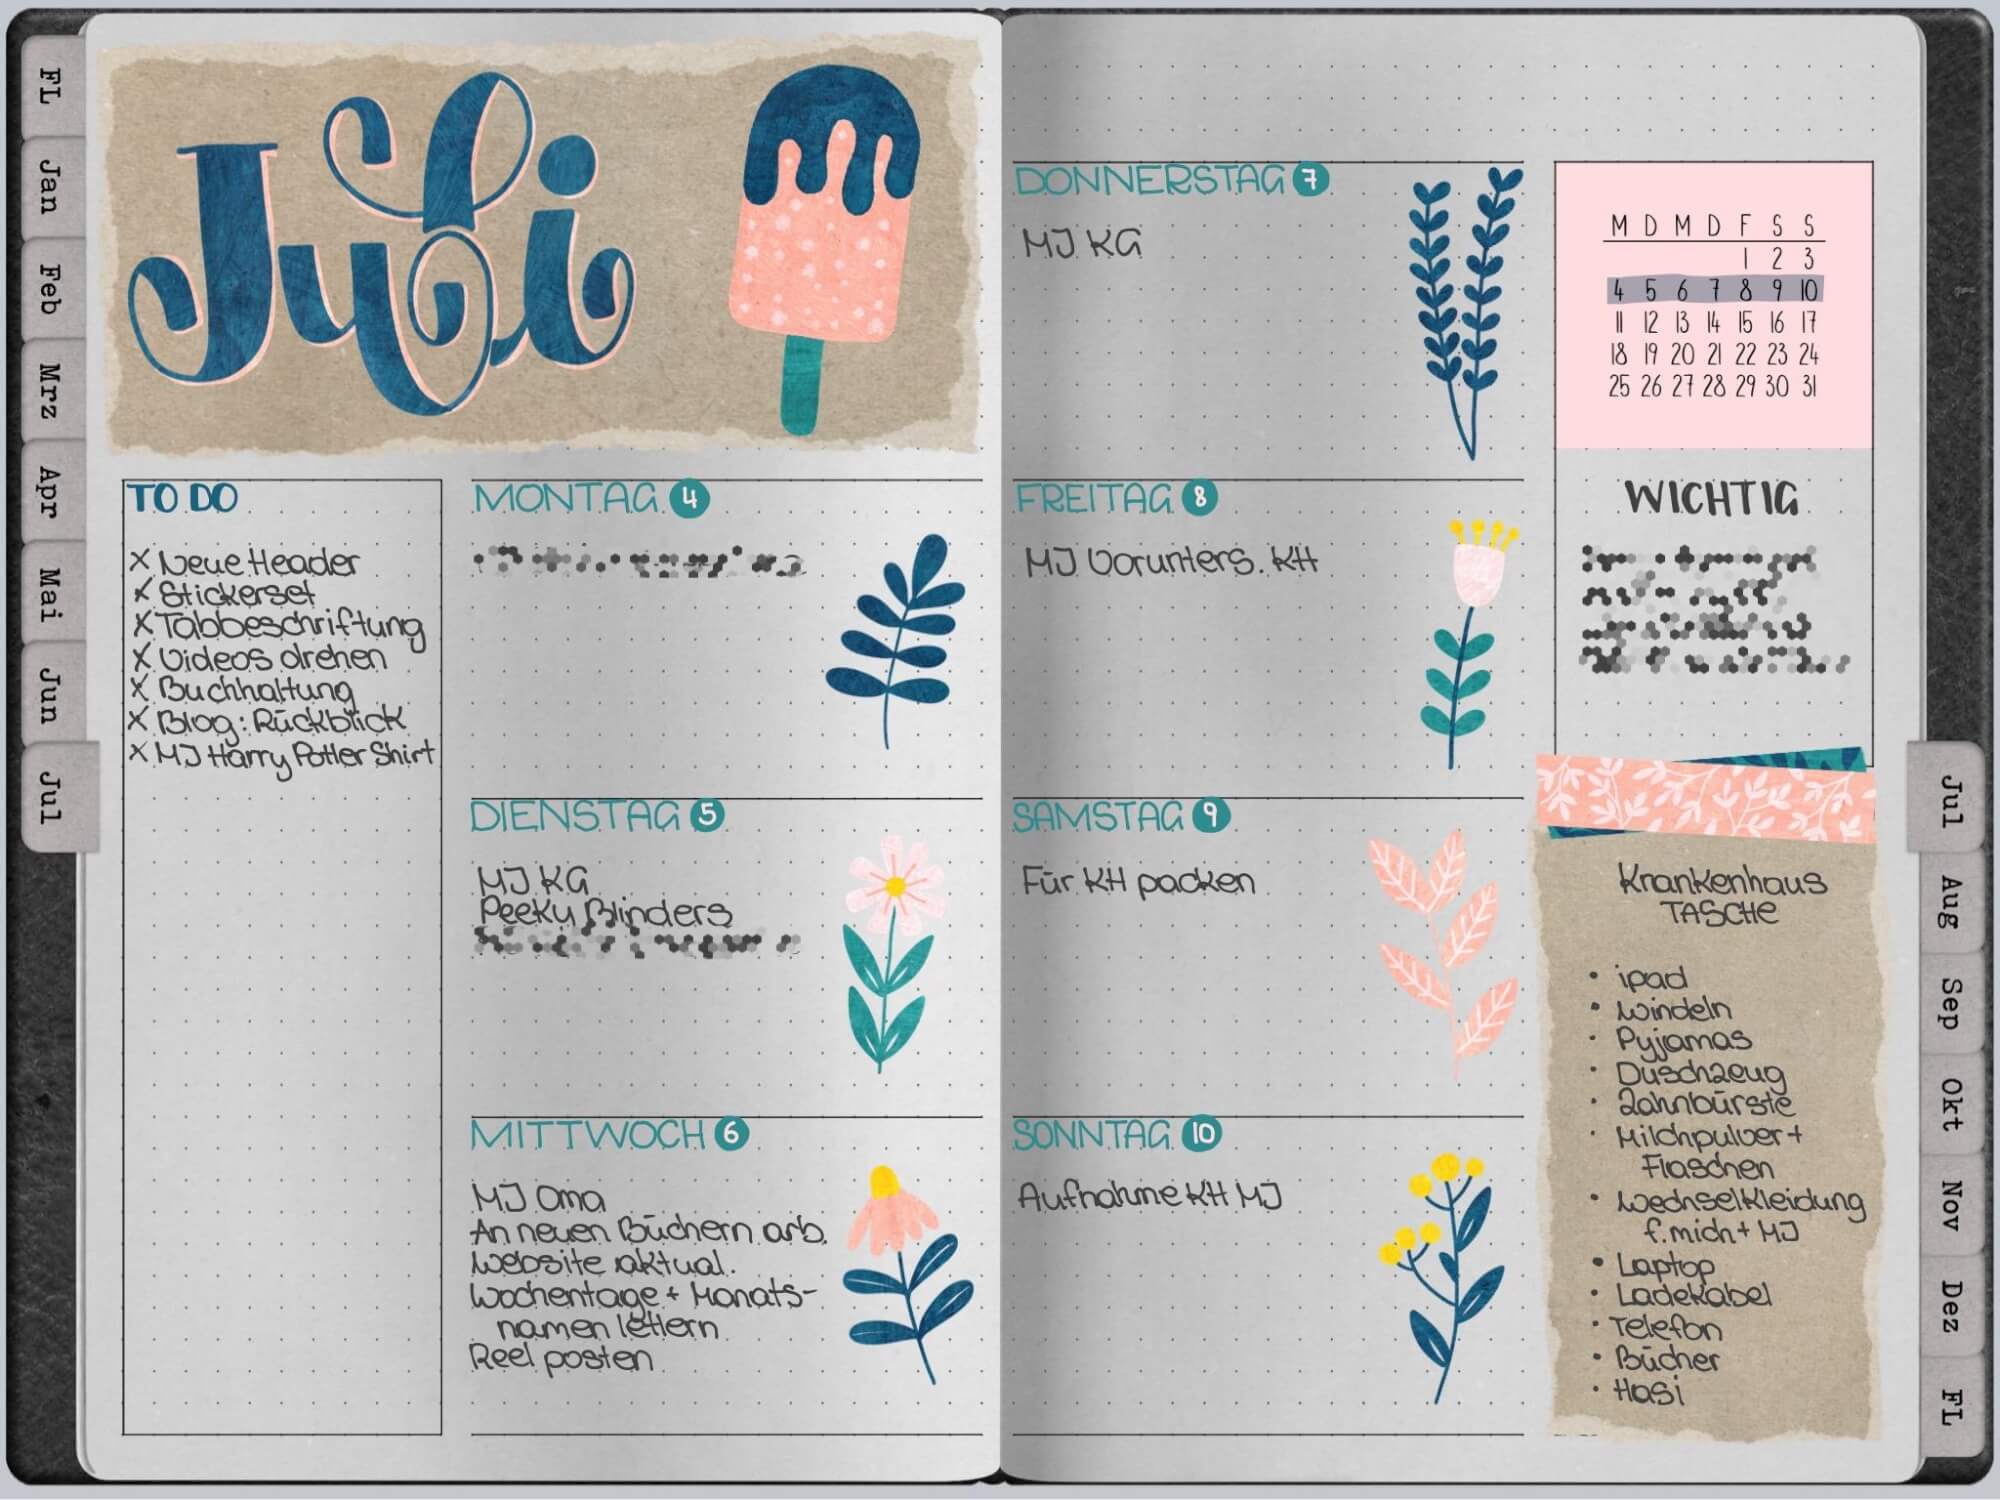 FL
Jan
Feb
Mrz
Apr
Mai
Jun
Jul
Juli
TO DO
X Neue Header
X Stickerset
X Tabbeschriftung
X Videos drehen
X Buchhaltung
X Blog: Rückblick
X MJ Harry Potter Shirt
MONTAG 4
DIENSTAG 5
MJ KG
Peeky Blinders
MITTWOCH 6
MJ Oma
An neuen Büchern arb.
Website aktual.
Wochentage + Monats-
namen lettern
Reel posten
DONNERSTAG 7
MJ KG
FREITAG 8
MJ Vorunters. KH
SAMSTAG 9
Für KH packen
SONNTAG 10
Aufnahme KH MJ
M D M D F S S
1 2 3
4 5 6 7 8 9 10
11 12 13 14 15 16 17
18 19 20 21 22 23 24
25 26 27 28 29 30 31
WICHTIG
Krankenhaus
TASCHE
• ipad
• Windeln
• Pyjamas
• Duschzeug
• Zahnbürste
• Milchpulver +
Flaschen
• Wechselkleidung
f. mich + MJ
• Laptop
• Ladekabel
• Telefon
• Bücher
• Hasi
Jul
Aug
Sep
Okt
Nov
Dez
FL